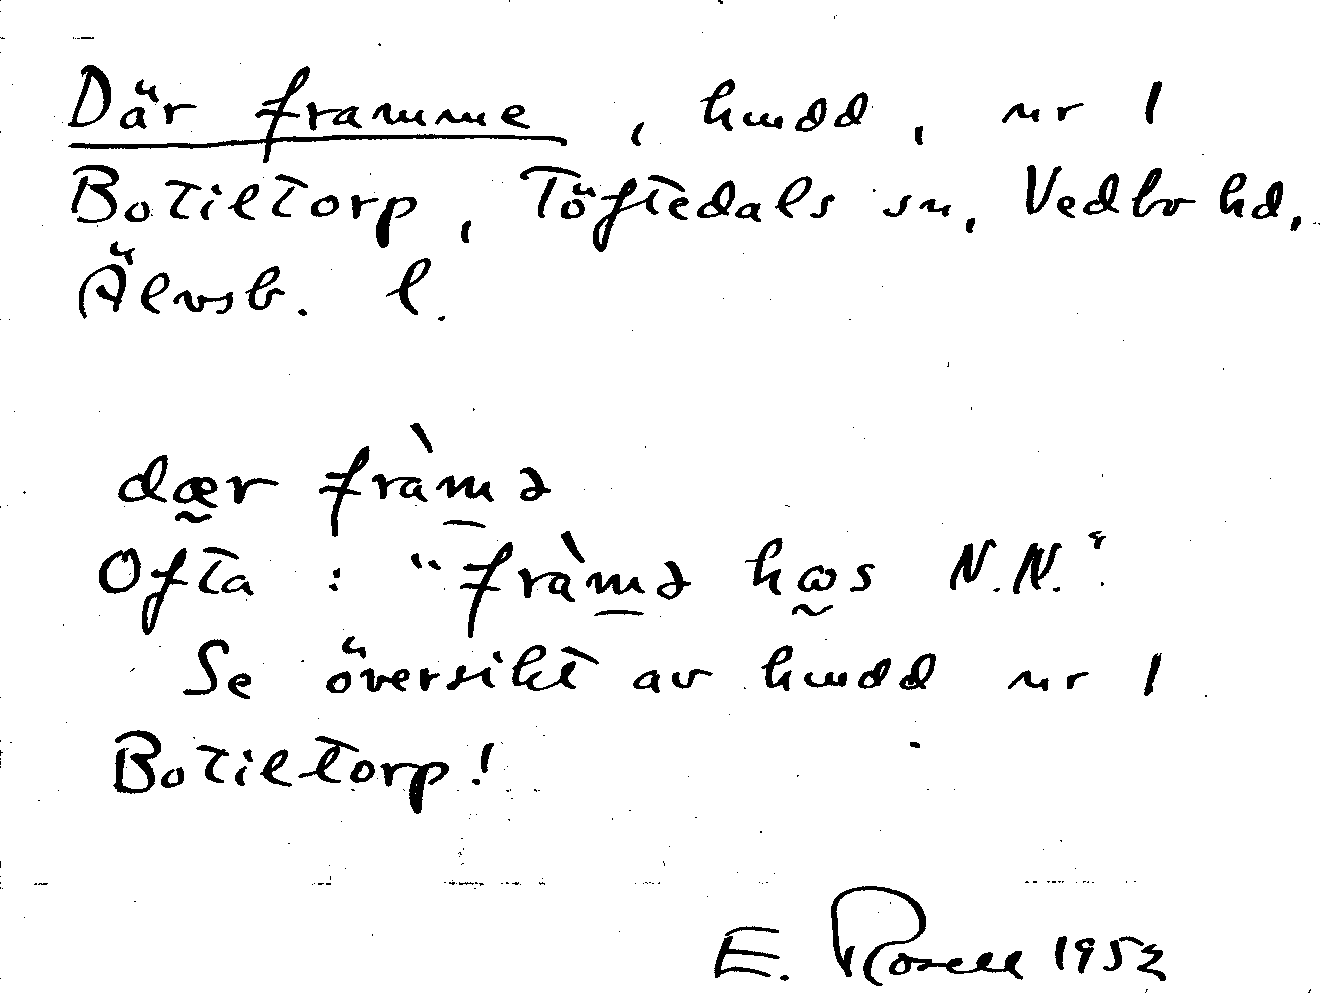 Där framme, hmdd, nr 1
Botiltorp, Töftedals sn, Vedbo hd,
Älvsb. l.
dær fràmə
Ofta : "fràmə hos N.N."
Se översikt av hmdd nr 1
Botiltorp!
E. Rosell 1952